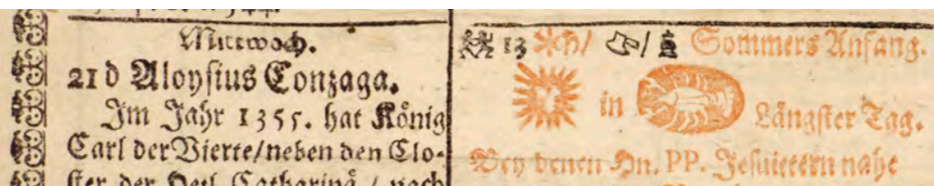 Mittwoch.
21 d Aloysius Gonzaga.
Im Jahr 1355. hat König
Carl der Vierte/neben den Clo-
ster der Heil. Catharinä / nach
13 Sommers Anfang.
in Längster Tag.
Bey denen Hn. PP. Jesuitern nahe